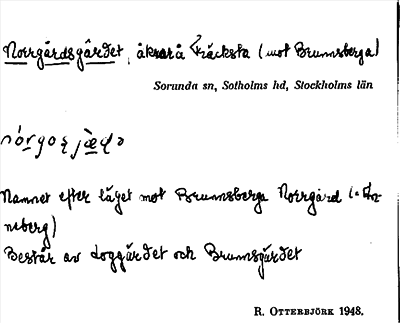 Norrgårdsgärdet, åkrar å Fräcksta (mot Brunnsberga)
Sorunda sn, Sotholms hd, Stockholms län
Namnet efter läget mot Brunnsberga Norrgård
neberg)
Består av Loggärdet och Brunnsgärdet
R. OTTERBJÖRK 1948.